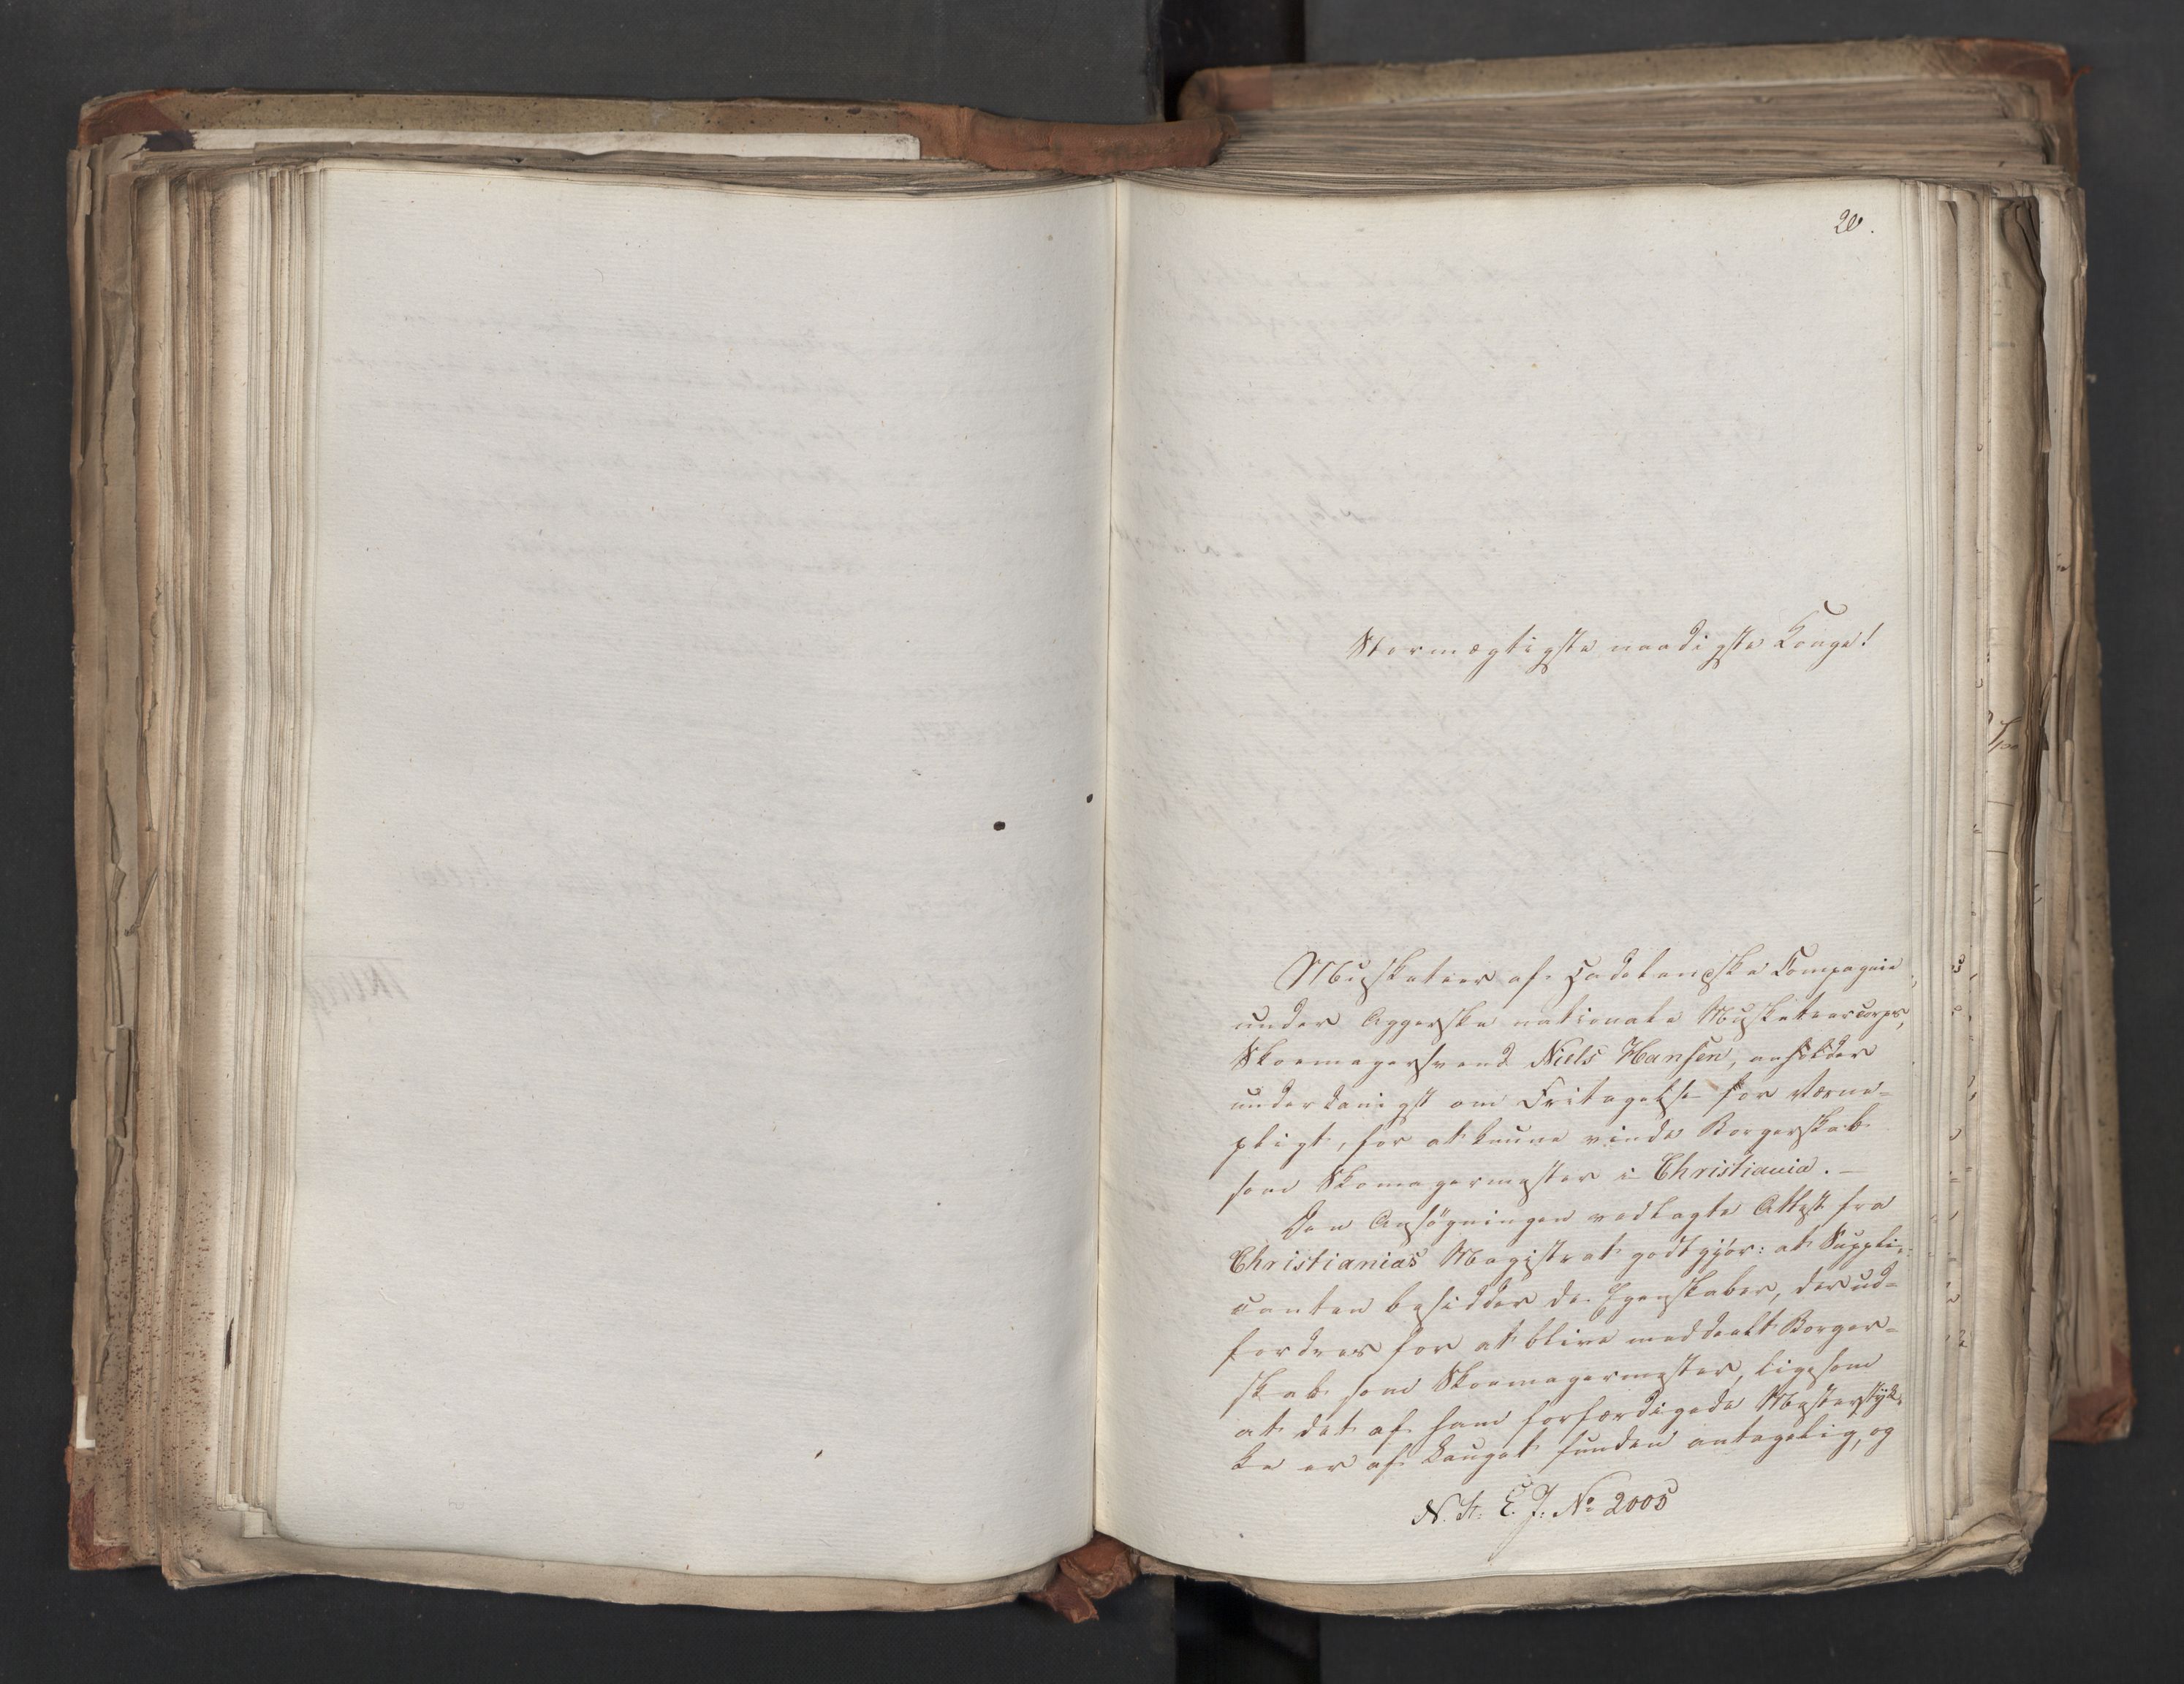 20.
Stormægtigste naadigste Konge!
Musketeer af Hadelandske Compagnie
under Aggerske nationale Musketeercorps,
Skoemagersvend Niels Hansen, anholder
underdanigst om Fritagelse for Værne-
pligt, for at kunne vinde Borgerskab
som Skomagermester i Christiania. —
Den Ansøgningen vedlagte Attest fra
Christianias Magistrat godtgjør: at Suppli-
canten besidder de Egenskaber, der ud-
fordres for at blive meddeelt Borger-
skab som Skoemagermester, ligesom
at det af ham forfærdigede Mesterstyk-
ke er af Lauget funden antagelig, og
N. St. E. J: No 2005